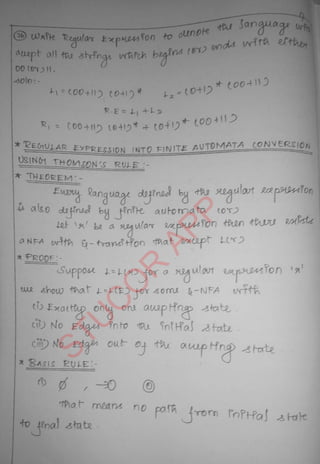 (36) Write Regular Expression to denote the language which
accept all the strings which begins (or) ends with either
00 (or) 11.
Soln:-
L1 = (00+11) (0+1)* L2 = (0+1)* (00+11)
R.E = L1 + L2
R1 = (00+11) (0+1)* + (0+1)* (00+11)
* REGULAR EXPRESSION INTO FINITE AUTOMATA CONVERSION
USING THOMSON'S RULE :-
* THEOREM:-
Every language defined by the regular expression
is also defined by finite automata (or)
Let 'r' be a regular expression then there exists
a NFA with ε-transition that accept L(r)
* PROOF:-
Suppose L=L(r) for a regular expression 'r'
we show that L=L(E) for some ε-NFA with
(i) Exactly only one accepting state.
(ii) No Edges into the initial state.
(iii) No Edges out of the accepting state
* BASIS RULE:-
(i) ∅ ,
That means no path from initial state
to final state.
STUCOR APP